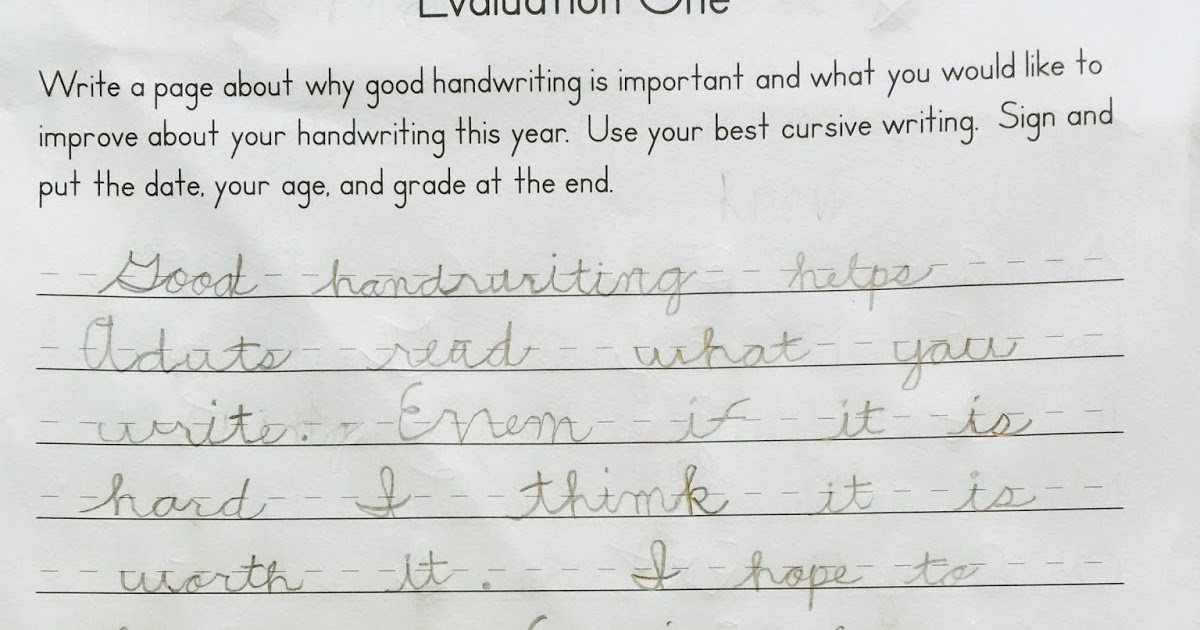 Evaluation One
Write a page about why good handwriting is important and what you would like to
improve about your handwriting this year. Use your best cursive writing. Sign and
put the date, your age, and grade at the end.
know
Good handwriting helps
Aduts read what you
write. Enem if it is
hard I think it is
worth it. I hope to